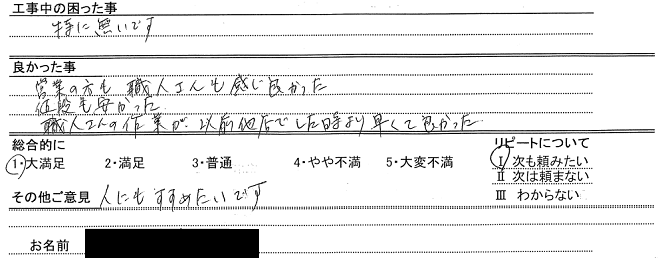 工事中の困った事
特に無いです
良かった事
営業の方も職人さんも感じ良かった
値段も安かった
職人さんの作業が、以前他店でした時より早くて良かった
総合的に リピートについて
1・大満足 2・満足 3・普通 4・やや不満 5・大変不満 Ⅰ 次も頼みたい
Ⅱ 次は頼まない
その他ご意見 人にもすすめたいです Ⅲ わからない
お名前